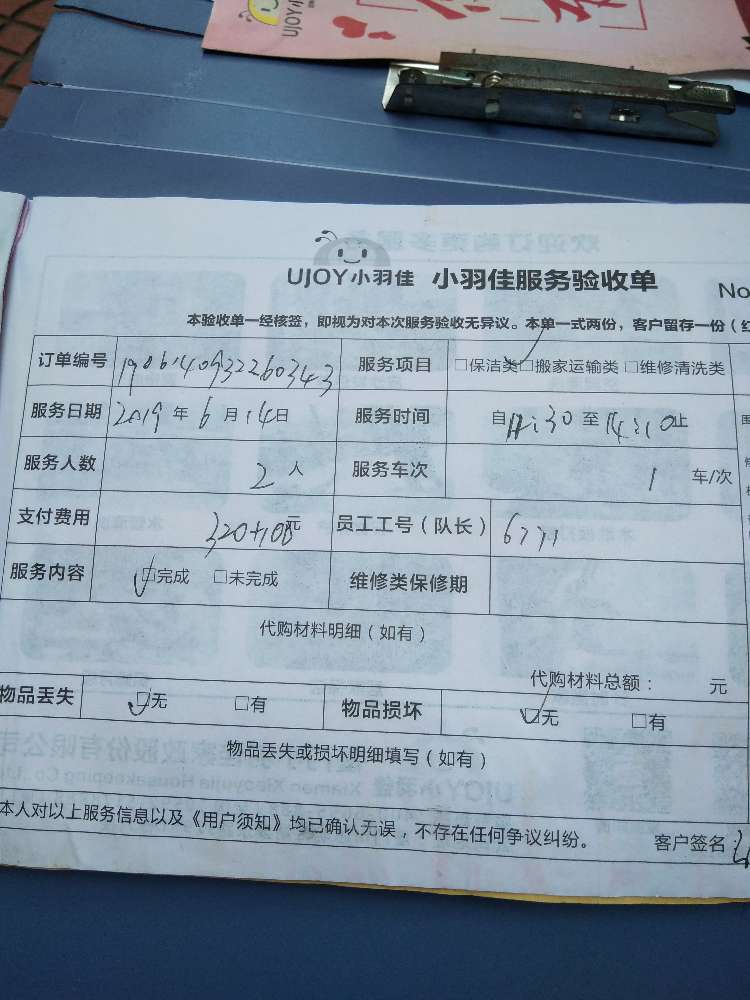 UJOY小羽佳 小羽佳服务验收单 No
本验收单一经核签，即视为对本次服务验收无异议。本单一式两份，客户留存一份（红
订单编号 19061409322260343 服务项目 □保洁类 □搬家运输类 □维修清洗类
服务日期 2019年6月14日 服务时间 自12:30至14:10止
服务人数 2人 服务车次 1 车/次
支付费用 320+100元 员工工号（队长） 6771
服务内容 □完成 □未完成 维修类保修期
代购材料明细（如有）
代购材料总额： 元
物品丢失 □无 □有 物品损坏 □无 □有
物品丢失或损坏明细填写（如有）
本人对以上服务信息以及《用户须知》均已确认无误，不存在任何争议纠纷。
客户签名：